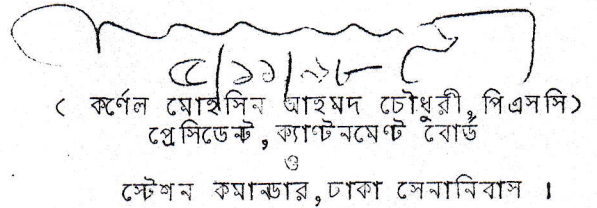 ৫/১১/৯৮
( কর্ণেল মোহসিন আহমদ চৌধুরী, পিএসসি)
প্রেসিডেন্ট, ক্যাণ্টনমেণ্ট বোর্ড
ও
স্টেশন কমান্ডার, ঢাকা সেনানিবাস ।